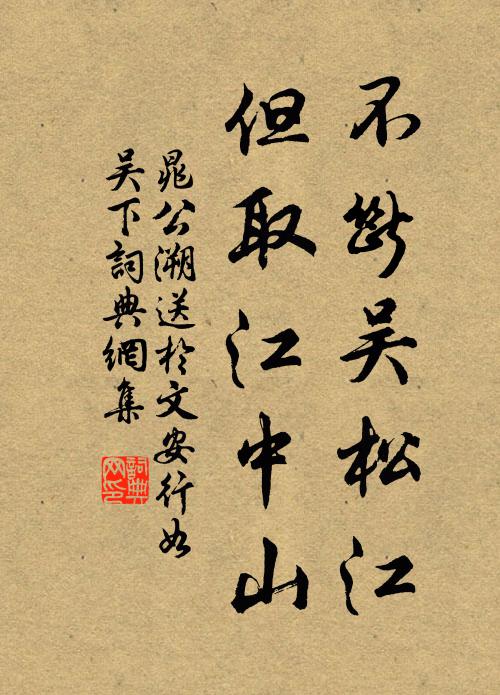 不斷吳松江
但取江中山
晁公溯送於文安行如
吳下詞典網集
詞典
网印